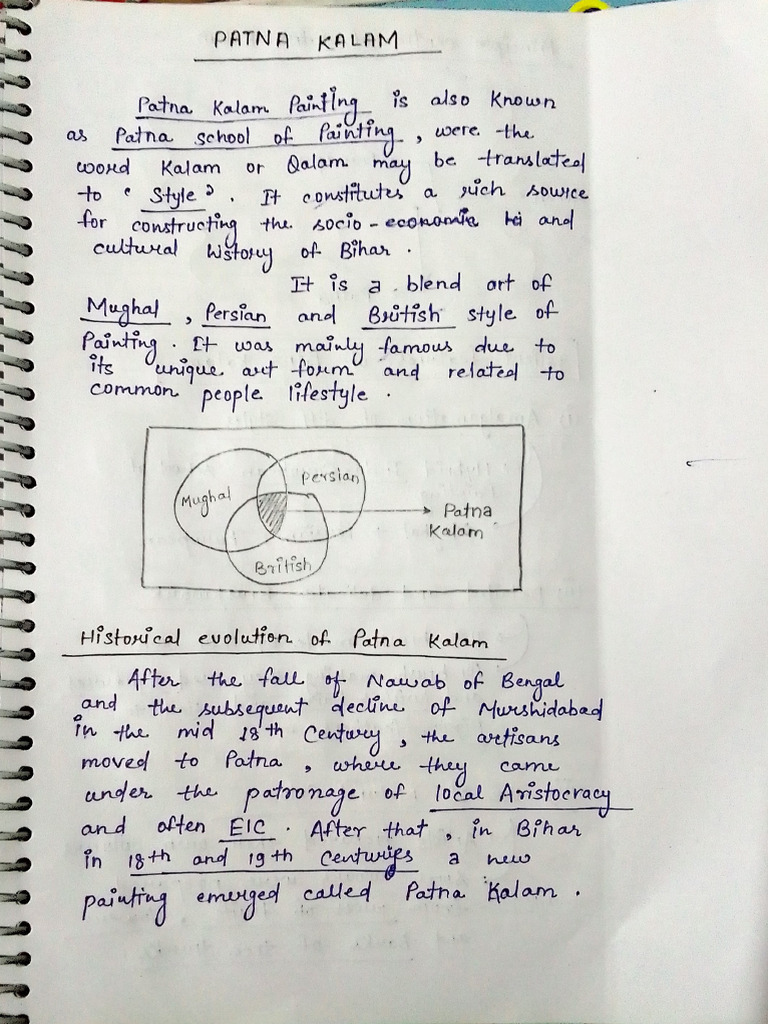 PATNA KALAM
Patna Kalam Painting is also known
as Patna school of Painting, were the
word Kalam or Qalam may be translated
to 'Style'. It constitutes a rich source
for constructing the socio-economic and
cultural history of Bihar.
It is a blend art of
Mughal, Persian and British style of
Painting. It was mainly famous due to
its unique art form and related to
common people lifestyle.
Mughal
Persian
British
Patna
Kalam
Historical evolution of Patna Kalam
After the fall of Nawab of Bengal
and the subsequent decline of Murshidabad
in the mid 18th Century, the artisans
moved to Patna, where they came
under the patronage of local Aristocracy
and often EIC. After that, in Bihar
in 18th and 19th Centuries a new
painting emerged called Patna Kalam.